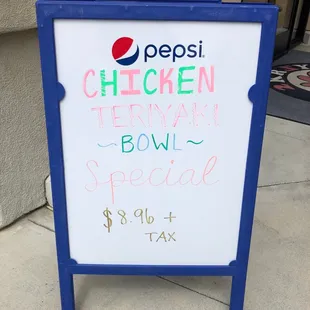 pepsi
CHICKEN
TERIYAKI
~BOWL~
Special
$8.96 +
TAX